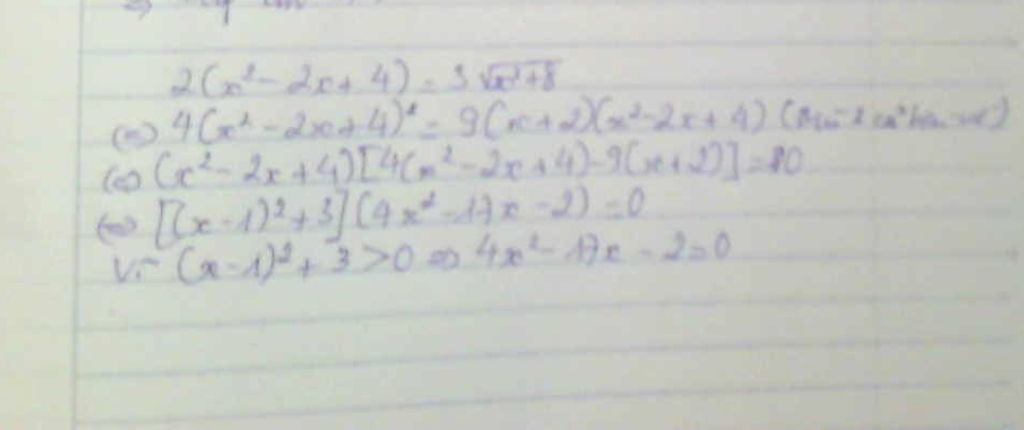 2(x² - 2x + 4) = 3√x³+8
(=) 4(x² - 2x + 4)² = 9(x+2)(x² - 2x + 4)
(=) (x² - 2x + 4)[4(x² - 2x + 4) - 9(x+2)] = 0
(=) [(x - 1)² + 3](4x² - 17x - 2) = 0
Vì (x - 1)² + 3 > 0 => 4x² - 17x - 2 = 0